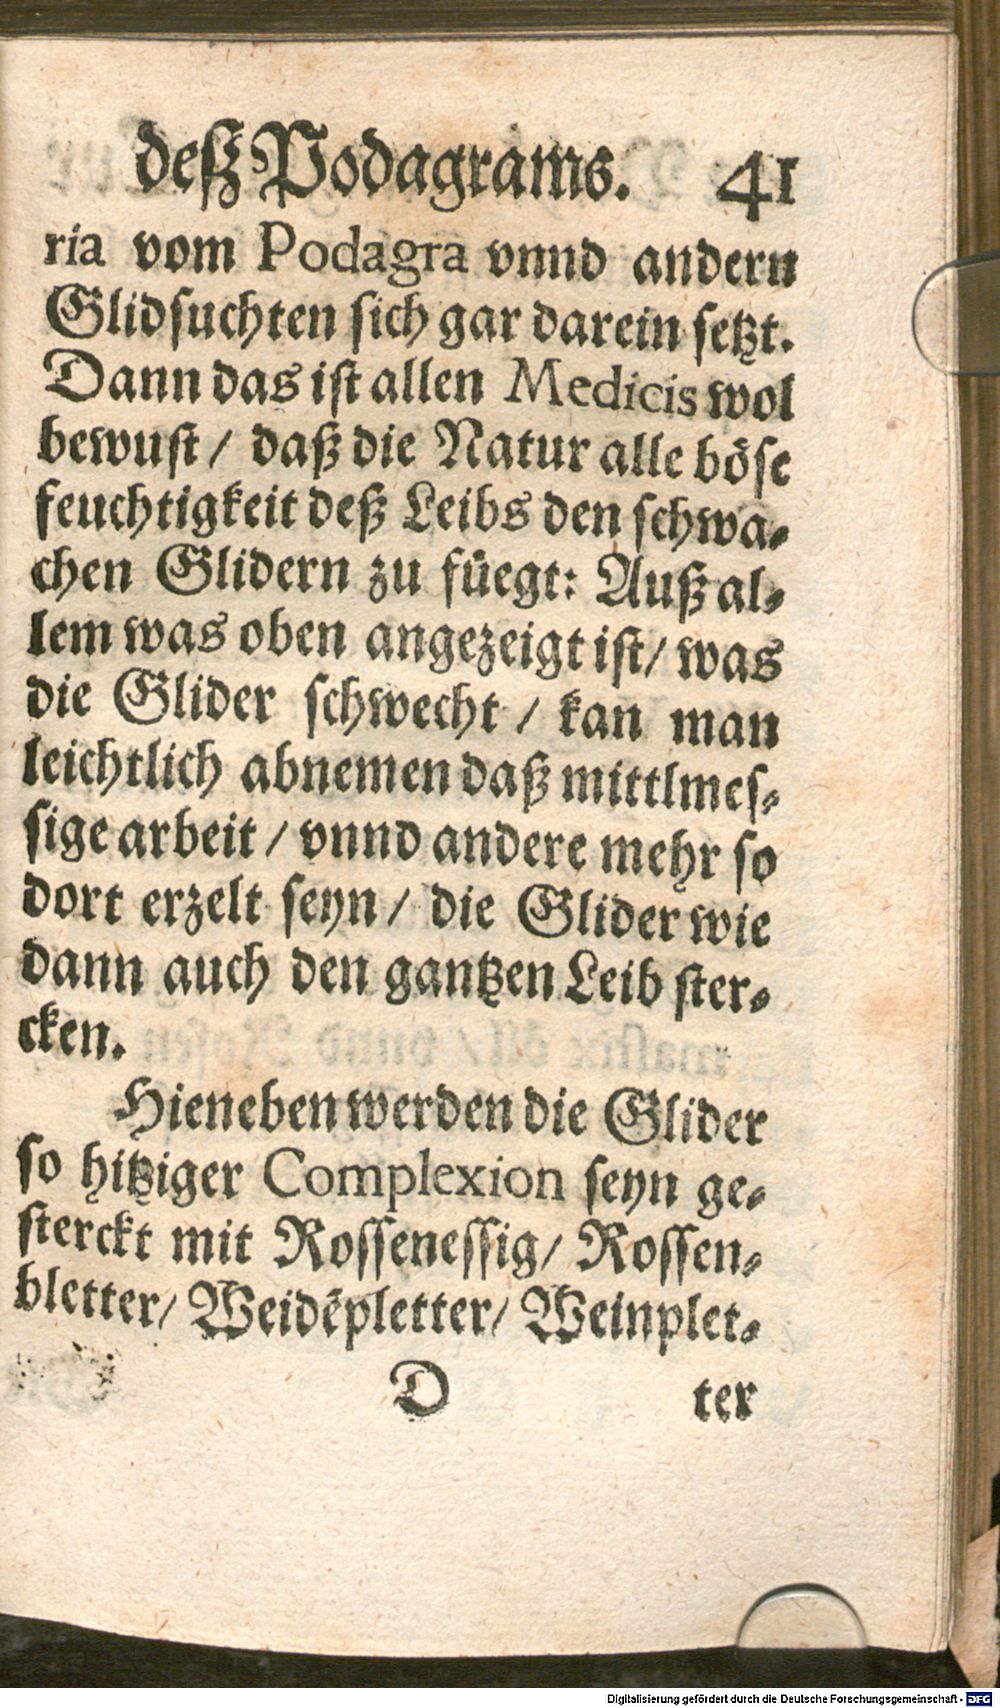 deß Podagrams. 41
ria vom Podagra vnnd andern
Glidsuchten sich gar darein setzt.
Dann das ist allen Medicis wol
bewust / daß die Natur alle böse
feuchtigkeit deß Leibs den schwa-
chen Glidern zu füegt: Auß al-
lem was oben angezeigt ist / was
die Glider schwecht / kan man
leichtlich abnemen daß mittlmes-
sige arbeit / vnnd andere mehr so
dort erzelt seyn / die Glider wie
dann auch den gantzen Leib ster-
cken.
Hieneben werden die Glider
so hitziger Complexion seyn ge-
sterckt mit Rossenessig / Rossen-
bletter / Weidēpletter / Weinplet-
D ter
Digitalisierung gefördert durch die Deutsche Forschungsgemeinschaft - DFG